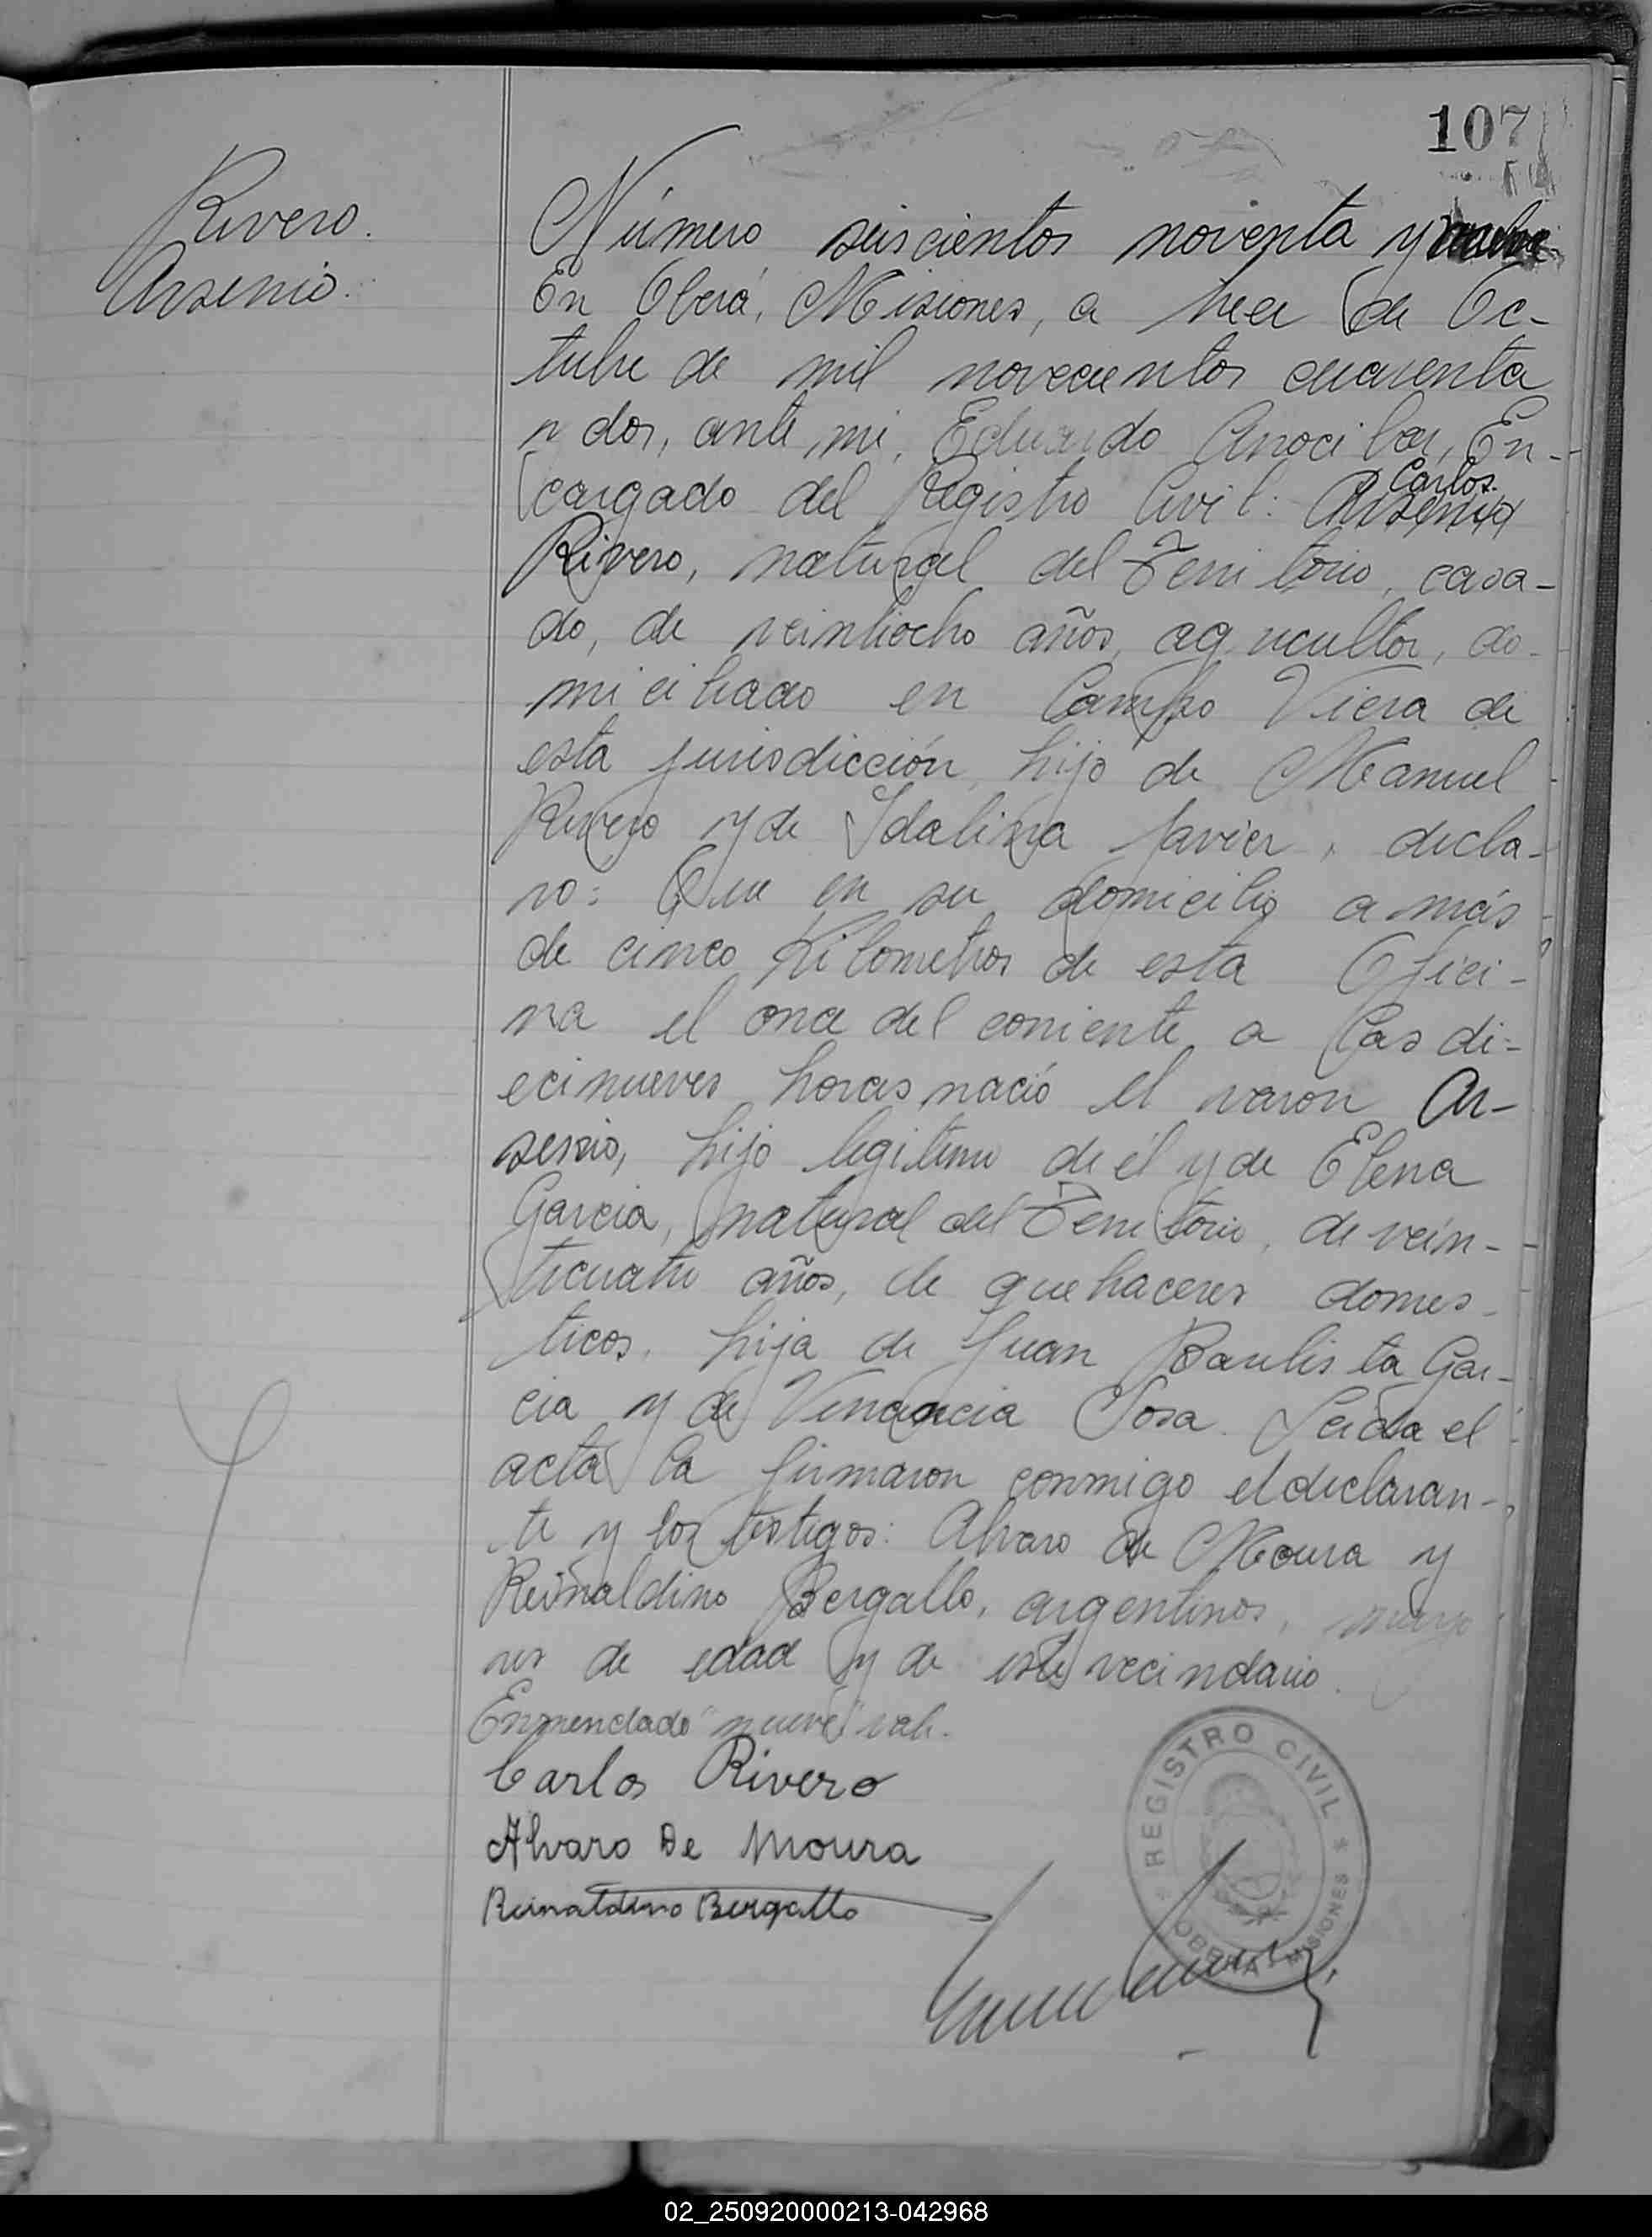 107
Rivero.
Arsenio.
Número seiscientos noventa y nueve
En Oberá, Misiones, a trece de Oc-
tubre de mil novecientos cuarenta
y dos, ante mi, Eduardo Arocibar, En-
cargado del Registro Civil: Arsenio Carlos
Rivero, natural del Territorio, casa-
do, de veintiocho años, agricultor, do-
miciliado en Campo Viera de
esta jurisdicción, hijo de Manuel
Rivero y de Idalina Javier, decla-
ro: Que en su domicilio a más
de cinco Kilometros de esta Ofici-
na el once del corriente a las di-
ecinueves horas nació el varon Ar-
senio, hijo legitimo de él y de Elena
Garcia, natural del Territorio, de vein-
ticuatro años, de quehaceres domes-
ticos, hija de Juan Bautista Gar-
cia y de Venancia Sosa. Leida el
acta la firmaron conmigo el declaran-
te y los testigos: Alvaro de Moura y
Reinaldino Bergallo, argentinos, mayo
res de edad y de este vecindario.
Enmendado "nueve" vale.
Carlos Rivero
Alvaro De Moura
Reinaldino Bergallo
REGISTRO CIVIL
OBERA - MISIONES
02_250920000213-042968